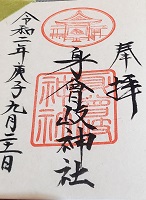 奉拝
身曾岐神社
令和二年庚子九月二十一日